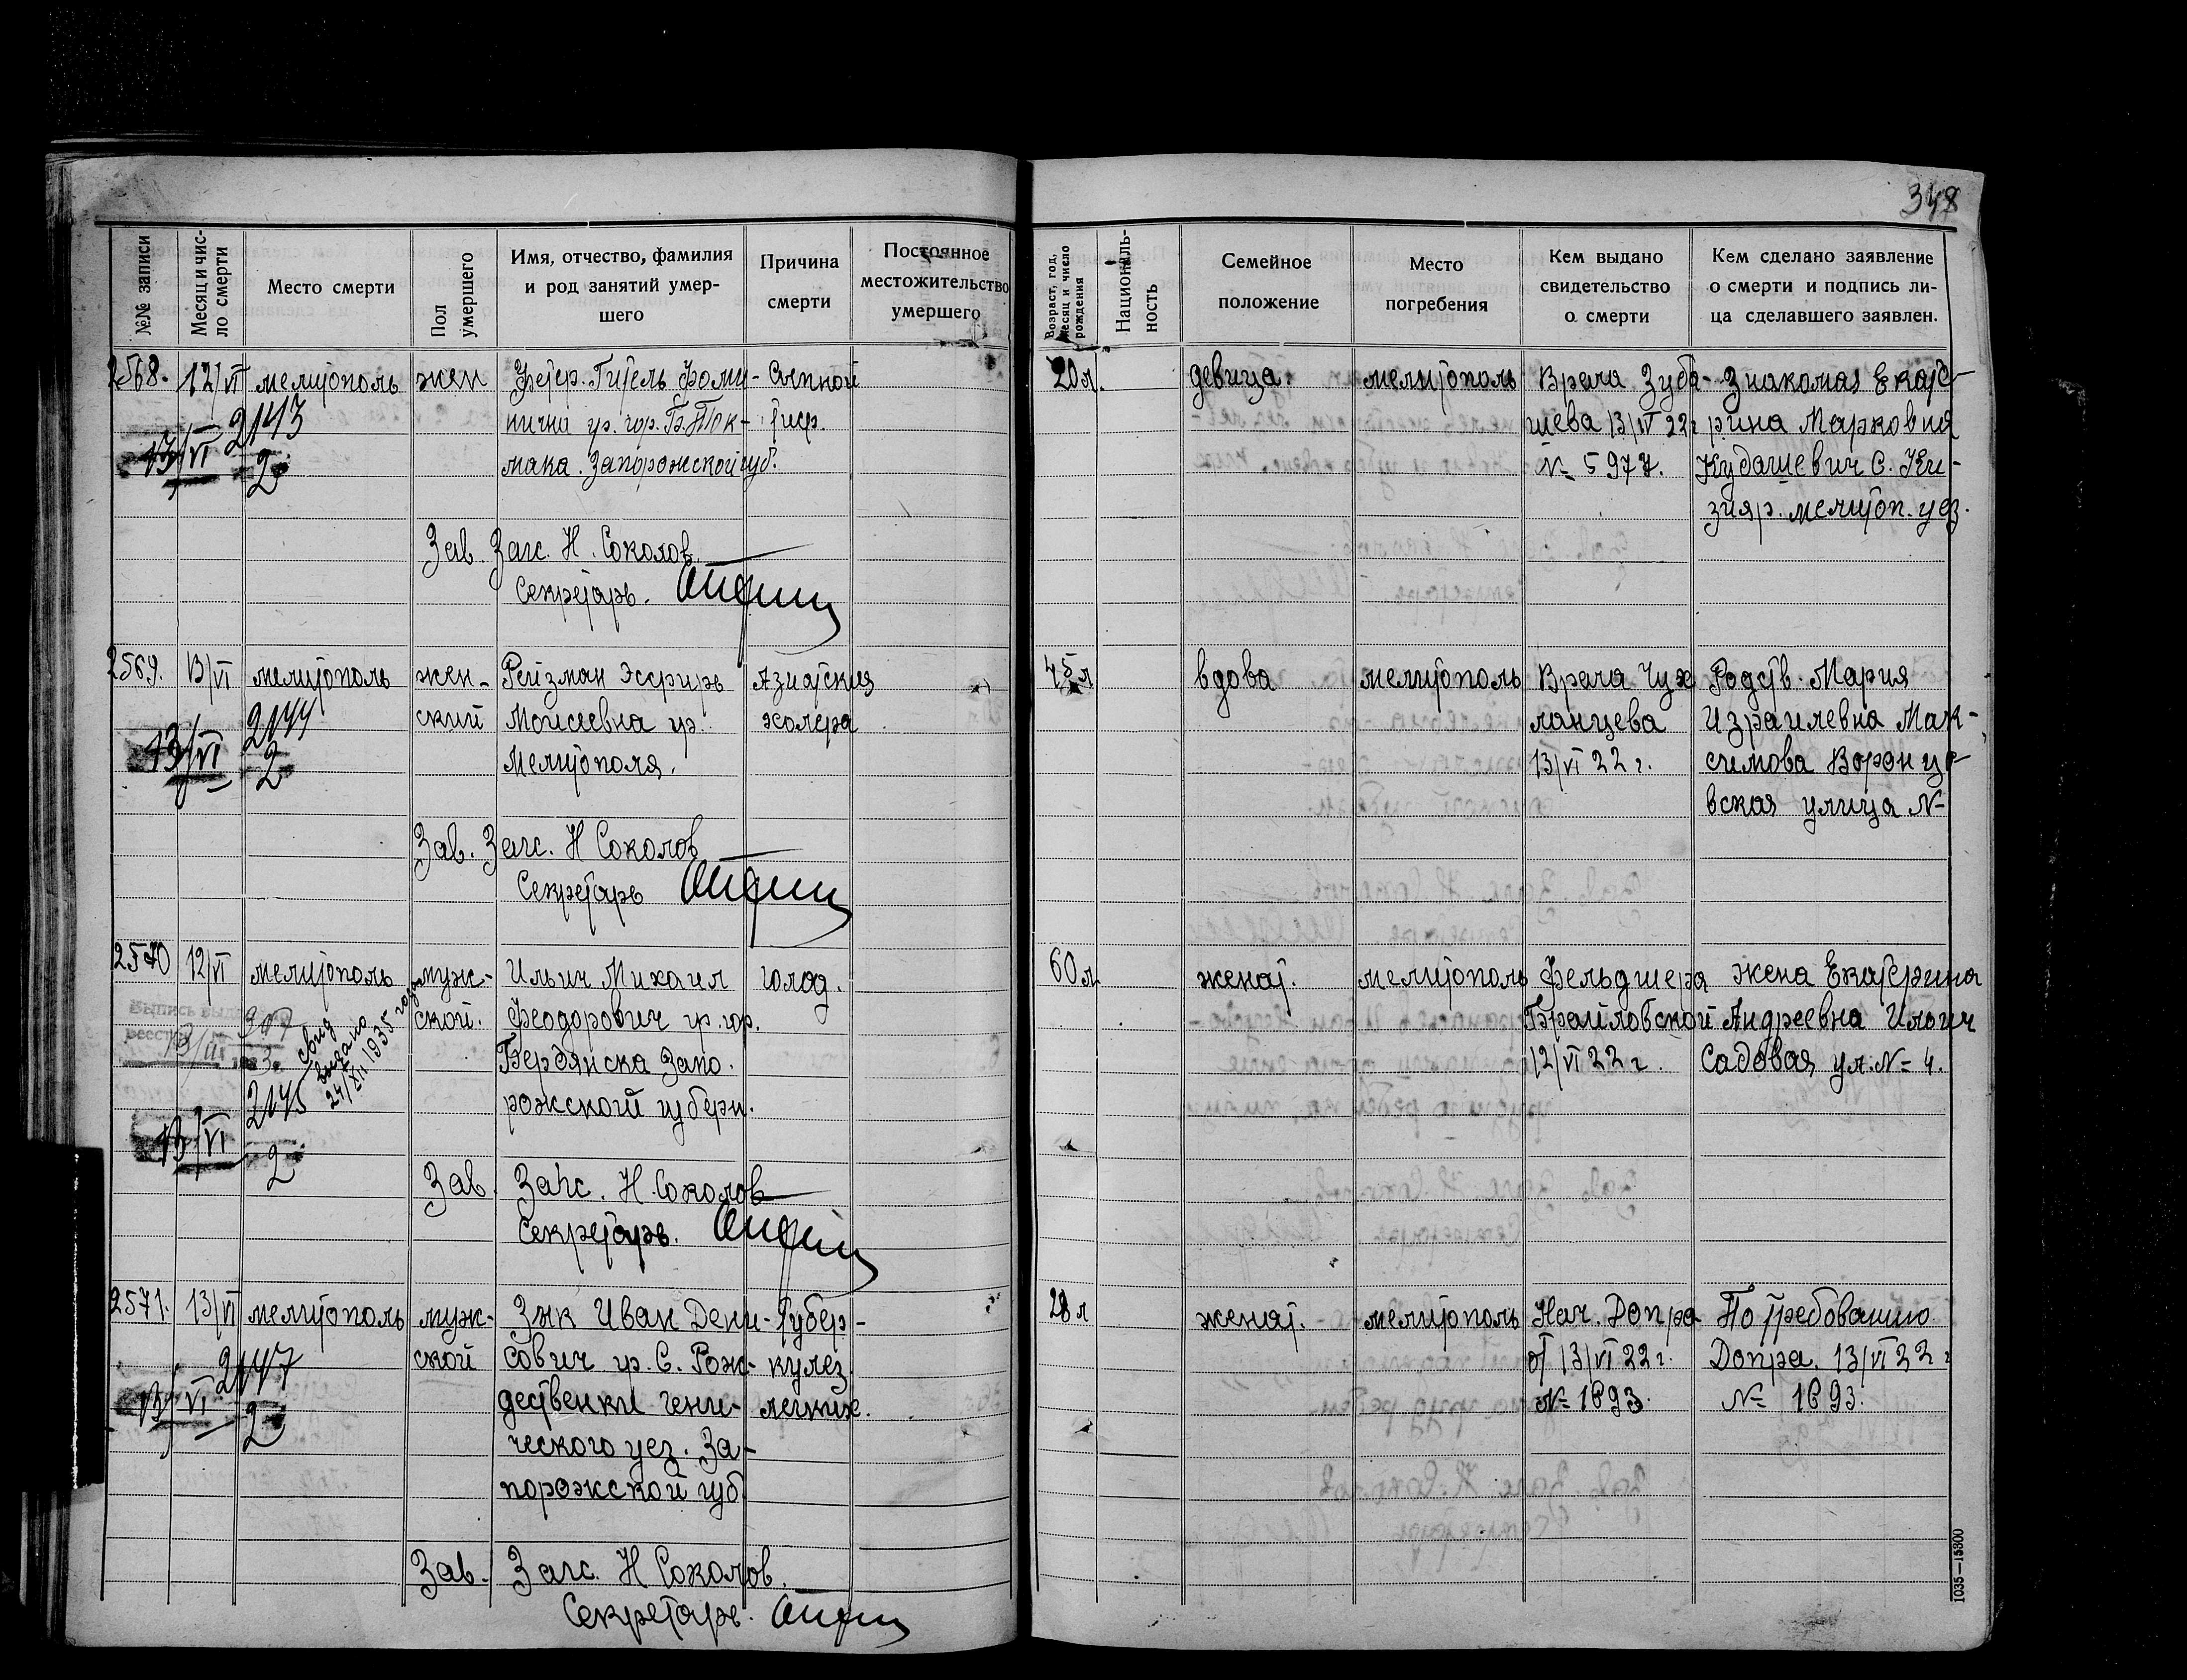 348
№№ записи
Месяц и число смерти
Место смерти
Пол умершего
Имя, отчество, фамилия
и род занятий умер-
шего
Причина
смерти
Постоянное
местожительство
умершего
Возраст, год,
месяц и число
рождения
Националь-
ность
Семейное
положение
Место
погребения
Кем выдано
свидетельство
о смерти
Кем сделано заявление
о смерти и подпись ли-
ца сделавшего заявлен.
2568. 12/VI мелитополь жен Гитель Фоми- Сыпной 20 л. девица. мелитополь Врача Зуба- Знакомая Екате-
нична ур. гор. Б. Ток- тиф. шева 13/VI 22 г рина Марковна
мака. Запорожской губ. № 5977. Кудашевич С. Ки-
зияр. мелитоп. уез.
2143
13/VI 2
Зав. Загс. Н. Соколов.
Секретарь.
2569. 13/VI мелитополь жен- Рейзман Эсфирь Азиатския 45 л вдова мелитополь Врача Чух Родств. Мария
ский Моисеевна ур. холера ланцева Израилевна Мак-
Мелитополя. 13/VI 22 г. симова Воронцо-
вская улица №
2144
13/VI 2
Зав. Загс. Н Соколов
Секретарь
2570 12/VI мелитополь муж- Ильич Михаил голод. 60 л женат. мелитополь Фельдшера жена Екатерина
ской. Феодорович ур. гор. Браиловской Андреевна Ильич
Бердянска Запо- 12/VI 22 г. Садовая ул. № 4.
рожской губерн.
Выпись
907
свид
выдано
24/XII 1935 года
2145
13/VI 2
Зав. Загс. Н. Соколов
Секретарь.
2571. 13/VI мелитополь муж- Зюк Иван Дени- Тубер- 28 л женат. мелитополь Нач. Допра По требованию
ской сович ур. С. Рож- кулез от 13/VI 22 г. Допра. 13/VI 22 г
дественки гени- легких. № 1893. № 1893.
ческого уез. За-
порожской губ
2147
13/VI 2
Зав. Загс. Н Соколов.
Секретарь.
1035—15800